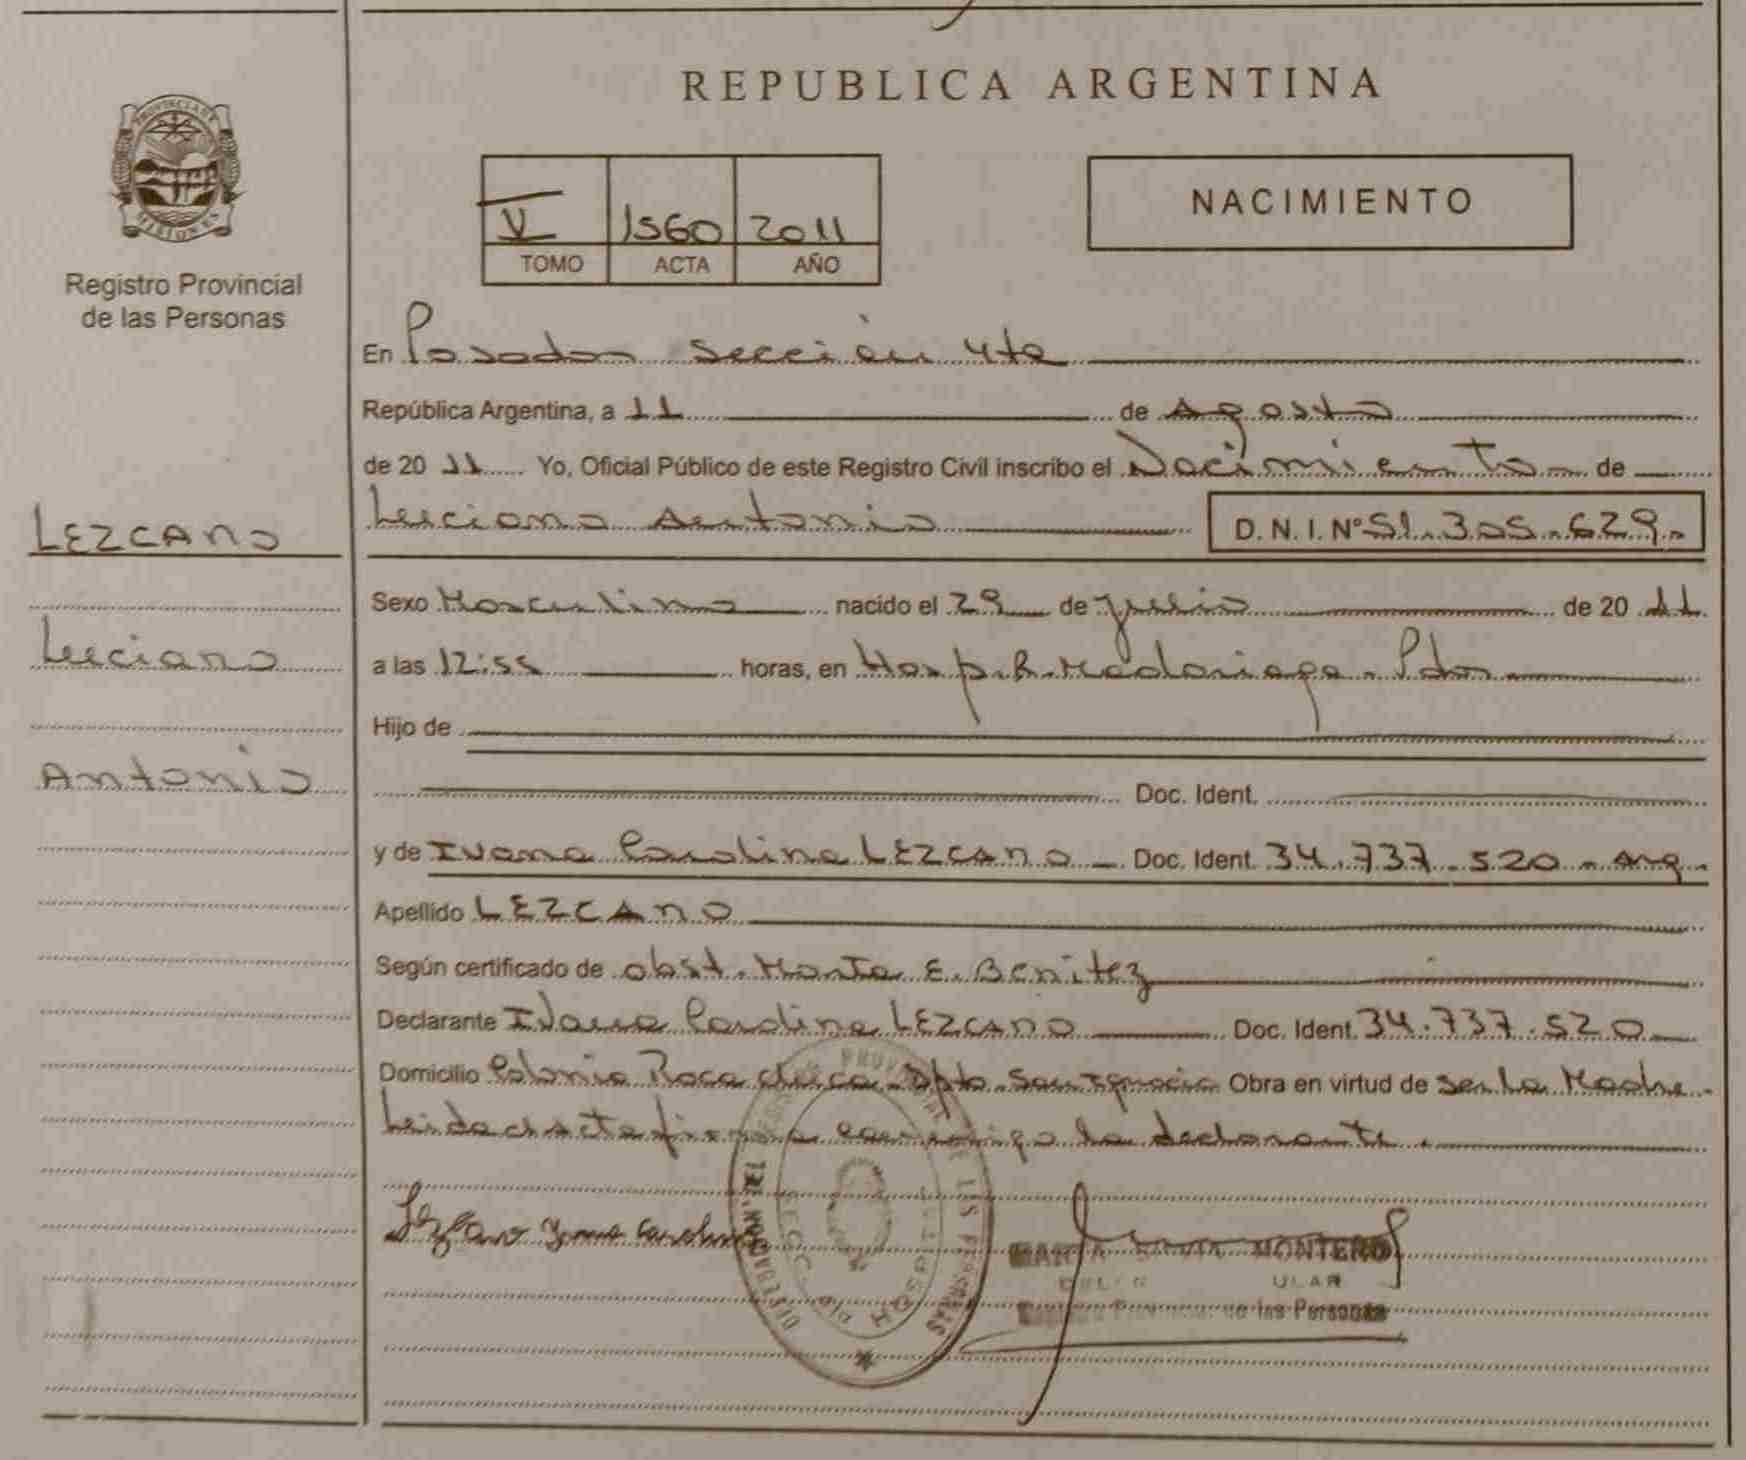 REPUBLICA ARGENTINA
PROVINCIA DE
MISIONES
Registro Provincial
de las Personas
V 1560 2011
TOMO ACTA AÑO
NACIMIENTO
En Posadas Sección 4ta
República Argentina, a 11 de Agosto
de 2011 Yo, Oficial Público de este Registro Civil inscribo el Nacimiento de
Luciano Antonio D.N.I.Nº 51.305.629.-
LEZCANO
Luciano
Antonio
Sexo Masculino nacido el 29 de Julio de 2011.
a las 12:55 horas, en Hosp. R. Madariaga - Pdas
Hijo de
Doc. Ident.
y de Ivana Carolina LEZCANO - Doc. Ident. 34.737.520 - Arg.
Apellido LEZCANO
Según certificado de obst. Marta E. Benitez
Declarante Ivana Carolina LEZCANO Doc. Ident. 34.737.520
Domicilio Colonia Roca chica - Dpto. San Ignacio Obra en virtud de ser la Madre.-
Leida el acta firma conmigo la declarante.
Lezcano Ivana Carolina
MONTERO
Registro Provincial de las Personas